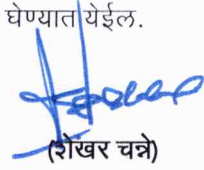 घेण्यात येईल.
(शेखर चन्ने)